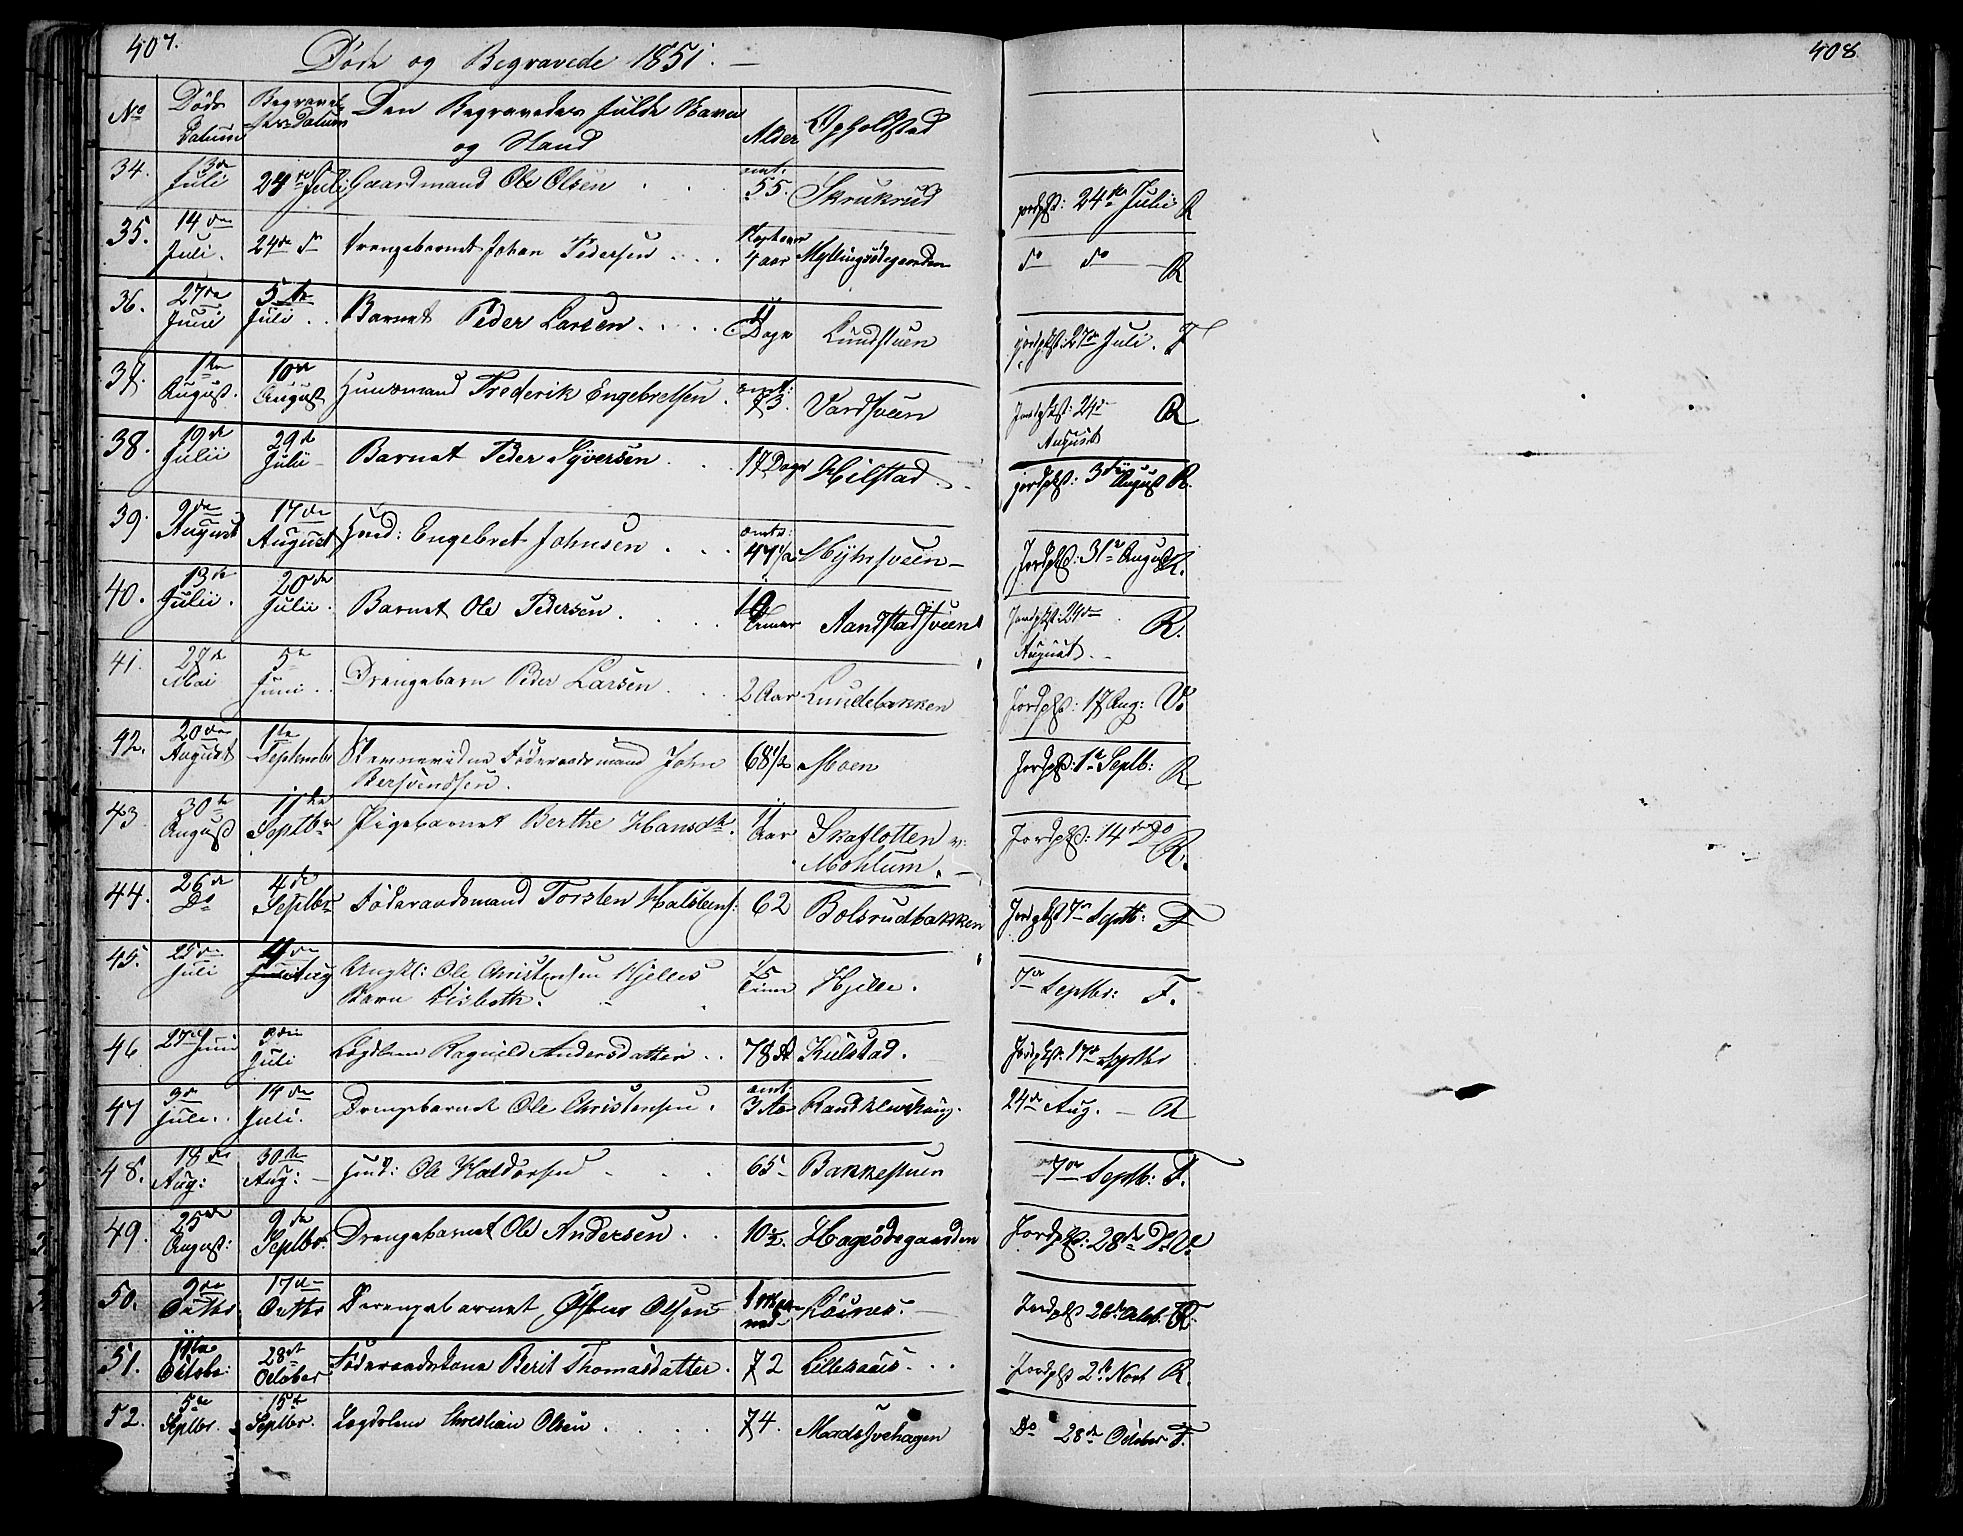 407.
Døde og Begravede 1851. —
408
No
Døds Datum
Begravel-ses Datum
Den Begravedes fulde Navn og Stand
Alder
Opholdsted
34. 13de Juli 24de Juli Gaardmand Ole Olsen . . . omt. 55. Skrukrud jordpkst: 24de Julii R
35. 14de Juli. 24de do Drengebarnet Johan Pedersen . . . 4 aar Myllingsødegaarden do do — R
36. 27de Juni 5te Juli . . Barnet Peder Larsen . . . . 11 Dage Lundstuen jordpkst: 27de Juli. F
37. 1te August. 10de August Huusmand Frederik Engebretsen . omt: 73. Vardsveen Jordpkst: 24de August R
38. 19de Julii 29de Julii Barnet Peder Syversen . . . 17 Dage Hilstad . jordpkst: 3die August R.
39. 9de August 17de August Husmd: Engebret Johnsen . . . omtr: 47 1/2 Myhrsveen — Jordpkst: 31te August R.
40. 13de Julii. 20de Julii. Barnet Ole Pedersen . . . . 10 Timer Aandstadsveen Jordpkst: 24de August. R.
41. 27de Mai 5te Juni . . Drengebarn Peder Larsen . . . 2 Aar Lundebakken Jordpkst: 17 Aug: V.
42. 20de August 1te Septembr Føderaadsmand John Bersvendsen. 68 1/2 Moen Jordpkst: 1te Septb: R
43. 30te August 11te Septbr Pigebarnet Berthe Hansdtr. 11 Aar Skaflotten v: Mohlum. — Jordpkst: 14de Do R.
44. 26de Do 4de Septbr Føderaadsmand Torsten Halstens: 62 Bolsrudbakken Jordpkst 7de Septb: F
45. 25de Juli 4de Aug Ungkl: Ole Christensen Hjelles Barn Lisbeth. 15 Timer Hjelle. 7de Septbr: F.
46 27de Juni 3die Juli Lægdslem Ragnild Andersdatter . . 78 Kulstad. Jordpkst: 17de Septbr
47 3de Juli . . 14de Juli. Drengebarnet Ole Christensen . omt: 3 Randklevhaug. 24de Aug. — R
48. 18de Aug: 30te Aug: — Husmd: Ole Haldorsen . . . 65 — Bakkestuen 7de Septb: F.
49. 25de August: 9de Septbr. Drengebarnet Ole Andersen . . 10 1/2. Hageødegaarden Jordpkst: 28de Do V.
50. 9de Octbr. 17de Octbr Drengebarnet Østen Olsen Løsnes. — Jordpkst 26de Octob. R.
51. 11te Octobr: 28de October Føderaadskone Berit Thomasdatter. 72 Lillehaave . . . Jordpkst 2de Novb R.
52. 5te Septbr. 15de Septbr. Lægdslem Christian Olsen . . . . . 74. Mordssvehagen Do 28de October F.